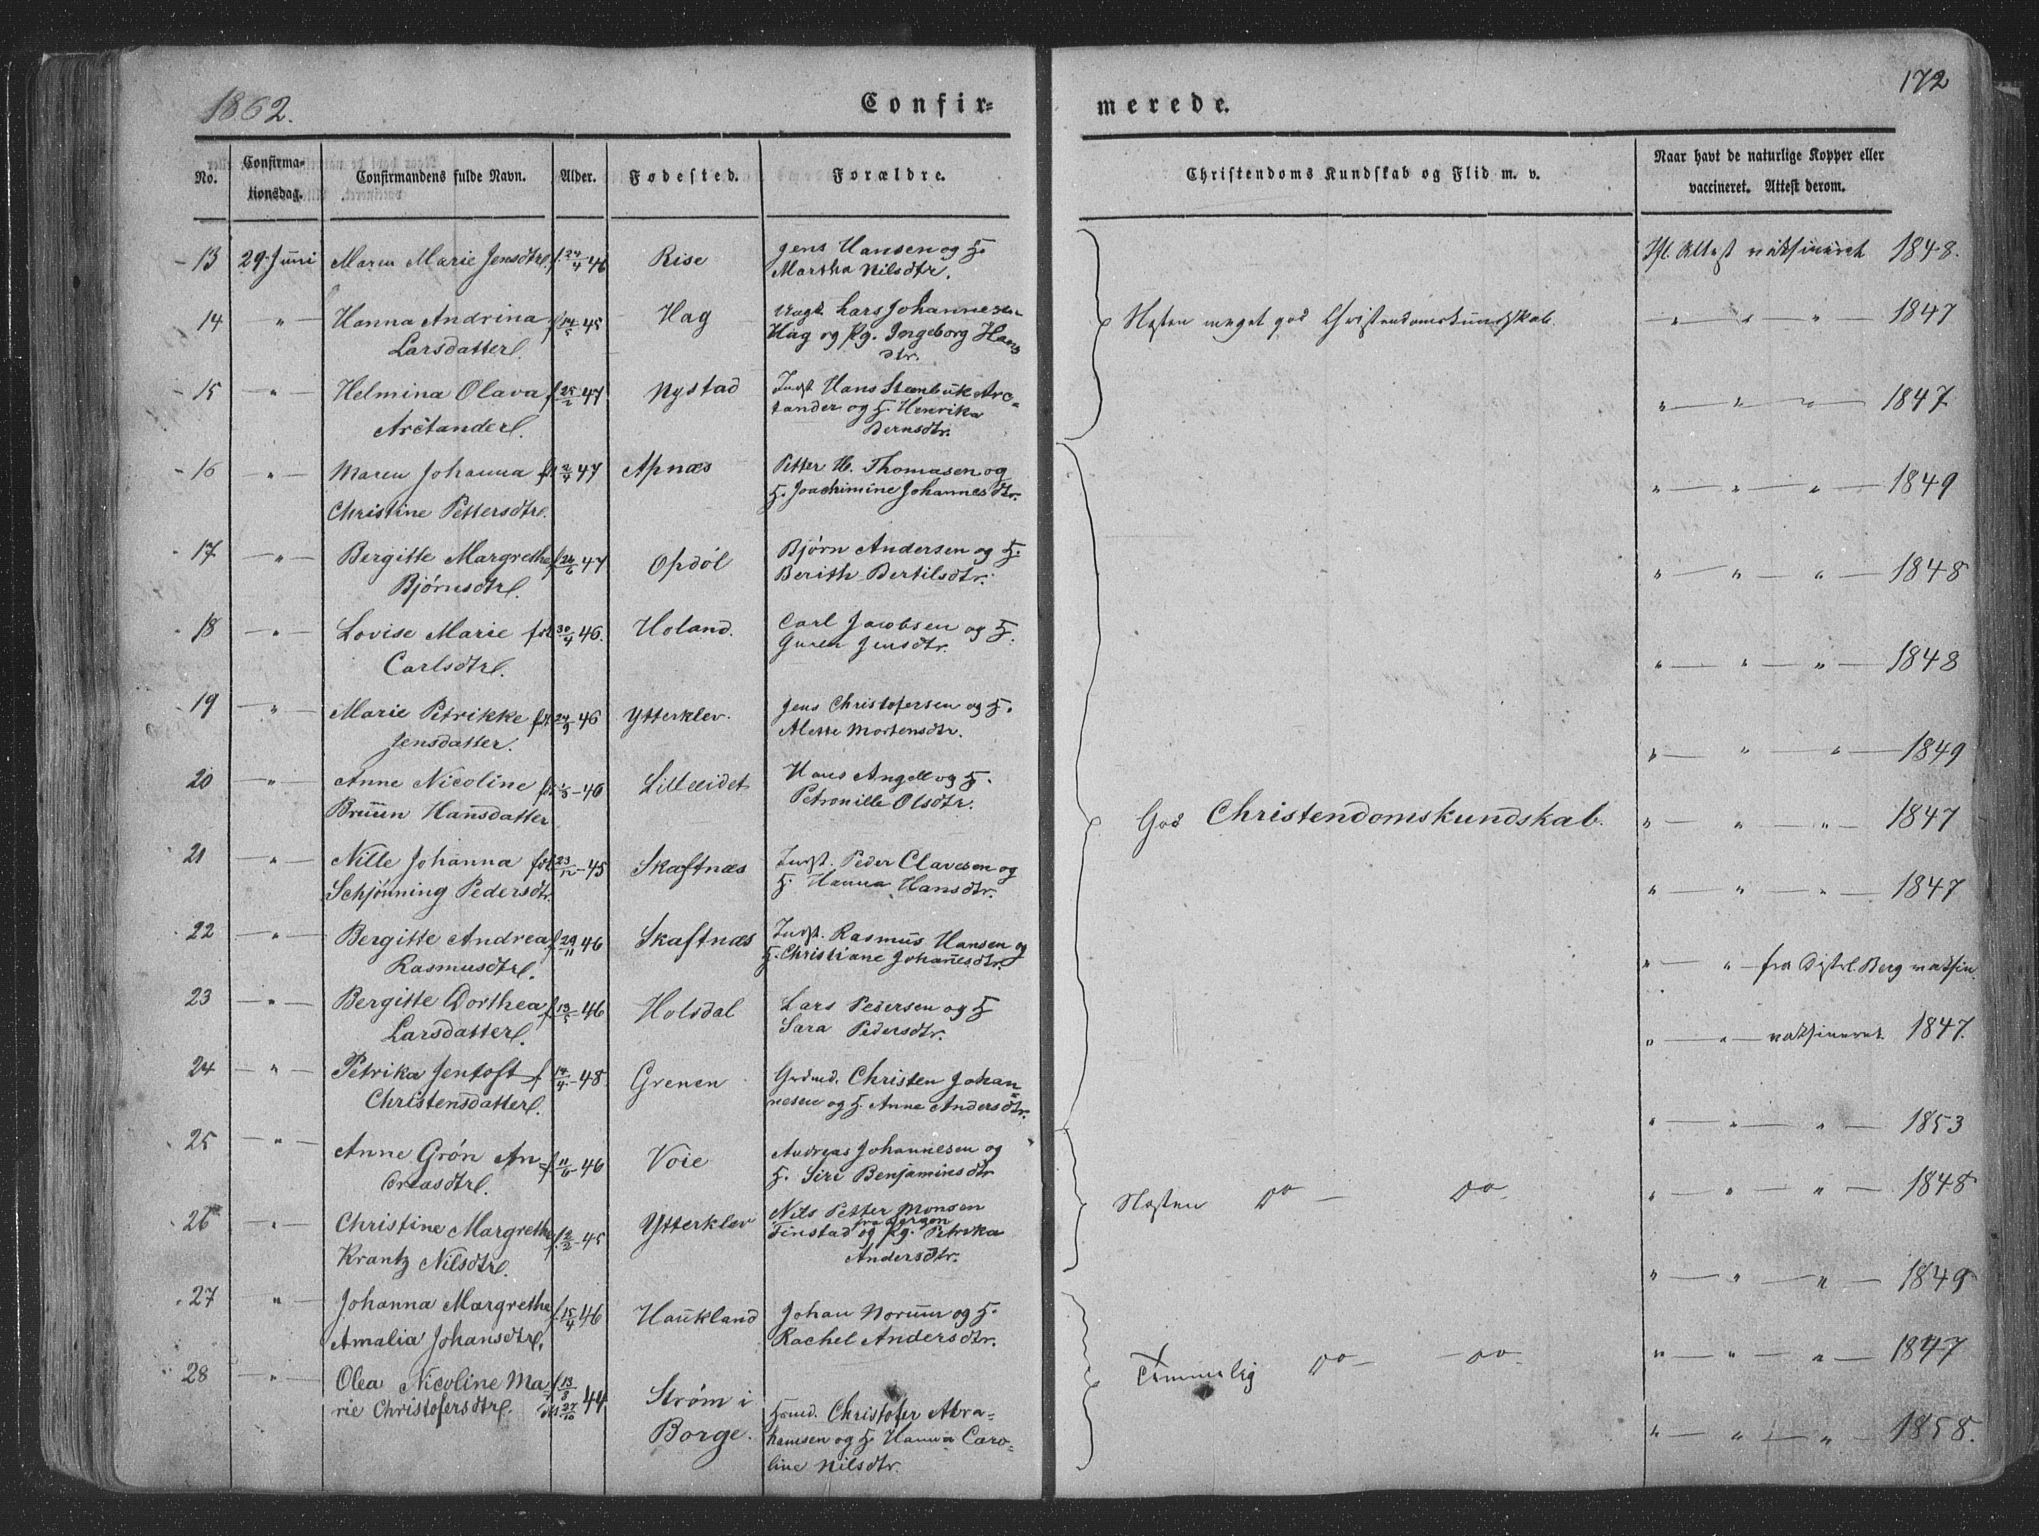 1862.
Confir-
merede.
172
No.
Confirma-
tionsdag.
Confirmandens fulde Navn.
Alder.
Fødested.
Forældre.
Christendoms Kundskab og Flid m. v.
Naar havt de naturlige Kopper eller
vaccineret. Attest derom.
13 29 Juni Maren Marie Jensdtr. f. 24/4 46 Rise Jens Hansen og H.
Martha Nilsdtr.
Ifl. Attest vaksineret 1848.
14 " Hanna Andrina f 14/5 45 Hag Lars Johannesen
Larsdatter. Hag og Pg. Ingeborg Hans
dtr.
Næsten meget god Christendomskundskab.
" " " 1847
15 " Helmina Olava f 25/2 47 Nystad Indst. Hans Steenbuk Arc-
Arctander. tander og H. Henrika
Bernsdtr.
" " " 1847
16 " Maren Johanna 2/4 47 Apnæs Petter H. Thomasen og
Christine Pettersdtr. H. Joachimine Johannesdtr.
" " " 1849
17 " Bergitte Margrethe f 26/6 47 Opdöl Bjørn Andersen og H.
Bjørnsdtr. Berith Bertilsdtr.
" " " 1848
18 " Lovise Marie fdt 30/4 46. Holand. Carl Jacobsen og H.
Carlsdtr. Guren Jensdtr.
" " " 1848
19 " Marie Petrikke 46 Ytterklev. Jens Christofersen og H.
Jensdatter. Alette Mortensdtr.
" " " 1849
20 " Anne Nicoline 46 Lilleeidet Hans Angell og H.
Bruun Hansdatter Petronille Olsdtr.
God Christendomskundskab.
" " " 1847
21 " Nille Johanna fdt 23/12 45 Skaftnæs Indst. Peder Clavesen og
Schjønning Pedersdtr. H. Hanna Hansdtr.
" " " 1847
22 " Bergitte Andrea f 29/11 46 Skaftnæs Indst. Rasmus Hansen og
Rasmusdtr. H. Christiane Johannesdtr.
" " fra Berg vaksin
23 " Bergitte Dorthea f 13/5 46 Holsdal Lars Pedersen og H
Larsdatter. Sara Pedersdtr.
" " vaksineret 1847.
24 " Petrika Jentoft f 48. Grenen Grdmd. Christen Johan
Christensdatter. nesen og H. Anne Andersdtr.
" " " 1853
25 " Anne Grøn An- f 11/6 46 Voie Andreas Johannesen og
dreasdtr. H. Siri Benjaminsdtr
Næsten Do Do
" " " 1848
26 " Christine Margrethe f. 2/2 45 Ytterklev Nils Petter Monsen
fra Bergen
Krantz Nilsdtr. Finstad og Pg. Petrika
Andersdtr.
" " " 1849
27 " Johanna Margrethe f. 15/4 46 Haukland Johan Norum og H.
Amalia Johansdtr. Rachel Andersdtr.
Temmelig Do Do
" " " 1847
28 " Olea Nicoline Ma- f 13/8 44 Strøm i
rie Christofersdtr. 27/10 Borge. Christofer Abra-
hamsen og H. Hanna Caro-
line Nilsdtr.
" " " 1858.